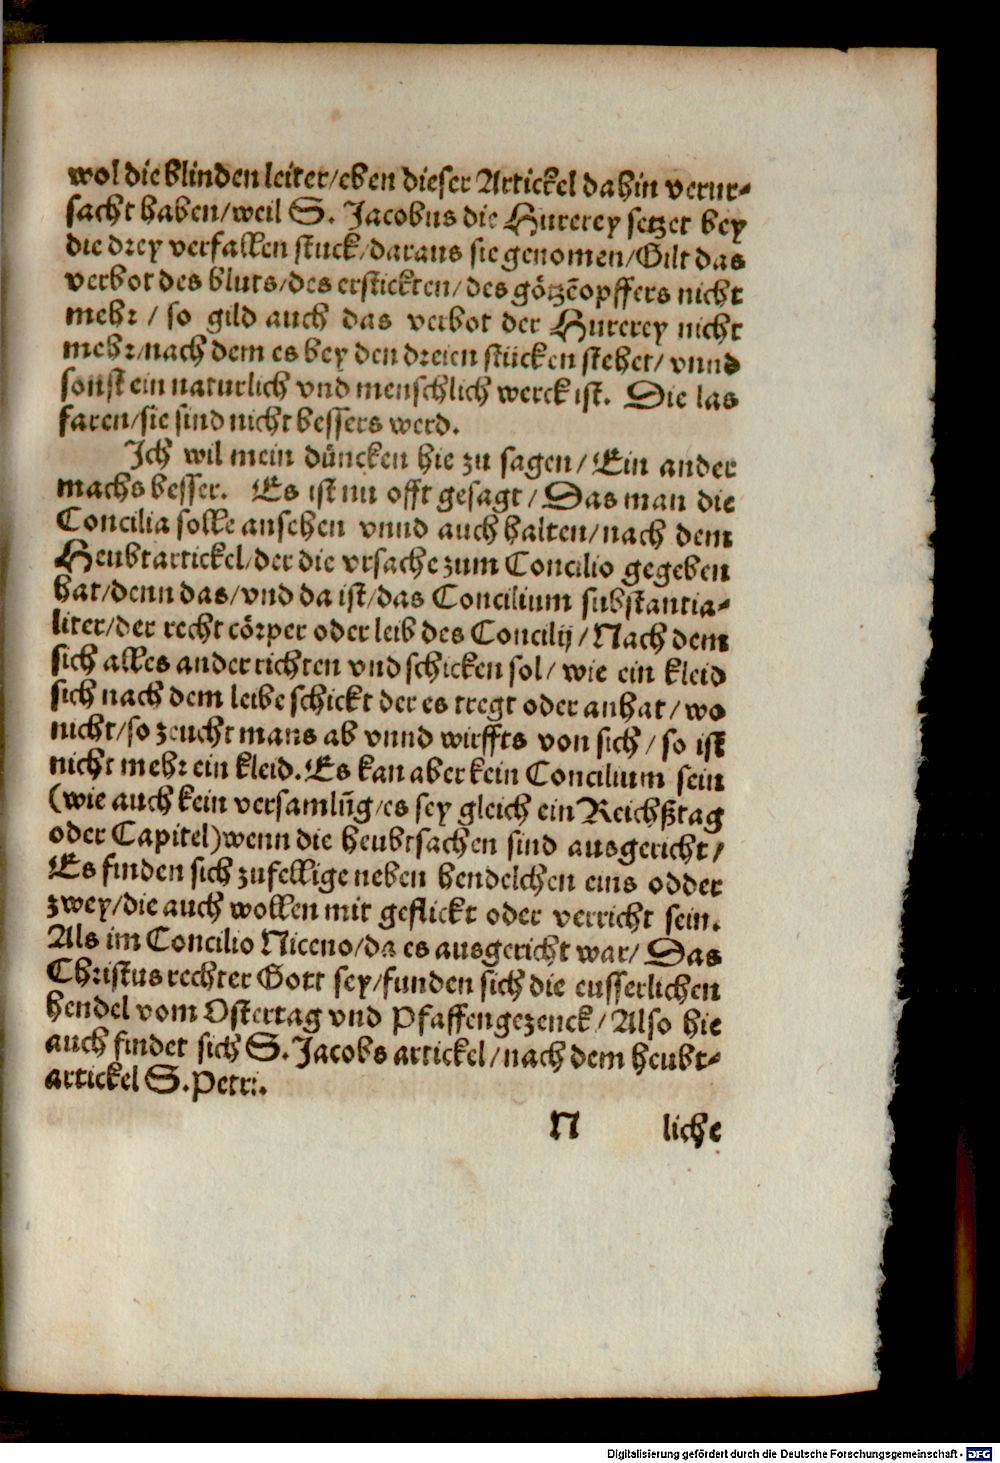 wol die blinden leiter/eben dieser Artickel dahin verur-
sacht haben/weil S. Jacobus die Hurerey setzet bey
die drey verfallen stuck/daraus sie genomen/Gilt das
verbot des bluts/des erstickten/des götzēopffers nicht
mehr / so gild auch das verbot der Hurerey nicht
mehr/nach dem es bey den dreien stücken stehet/ vnnd
sonst ein naturlich vnd menschlich werck ist. Die las
faren/sie sind nicht bessers werd.
Ich wil mein düncken hie zu sagen/ Ein ander
machs besser. Es ist nu offt gesagt/ Das man die
Concilia solle ansehen vnnd auch halten/nach dem
Heubtartickel/der die vrsache zum Concilio gegeben
hat/denn das/vnd da ist/das Concilium substantia-
liter/der recht cörper oder leib des Concilij/ Nach dem
sich alles ander richten vnd schicken sol/ wie ein kleid
sich nach dem leibe schickt der es tregt oder anhat/ wo
nicht/so zeucht mans ab vnnd wirffts von sich/ so ist
nicht mehr ein kleid. Es kan aber kein Concilium sein
(wie auch kein versamlūg/es sey gleich ein Reichßtag
oder Capitel)wenn die heubtsachen sind ausgericht/
Es finden sich zufellige neben hendelchen eins odder
zwey/die auch wollen mit geflickt oder verricht sein.
Als im Concilio Niceno/da es ausgericht war/ Das
Christus rechter Gott sey/funden sich die eusserlichen
hendel vom Ostertag vnd Pfaffengezenck/ Also hie
auch findet sich S. Jacobs artickel/nach dem heubt-
artickel S. Petri.
N liche
Digitalisierung gefördert durch die Deutsche Forschungsgemeinschaft - DFG